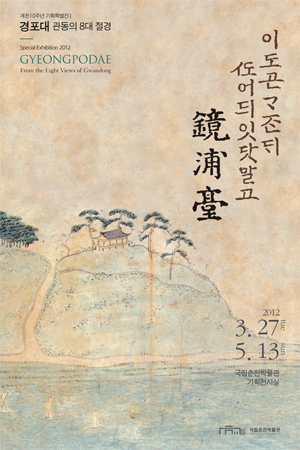 개관10주년 기획특별전 I
경포대 관동의 8대 절경
Special Exhibition 2012
GYEONGPODAE
From the Eight Views of Gwandong
이도곤 ᄀᆞᄌᆞᆫ 듸
ᄯᅩ어듸잇닷말고
鏡浦臺
2012
3. 27 TUE
5. 13 SUN
국립춘천박물관
기획전시실
국립춘천박물관